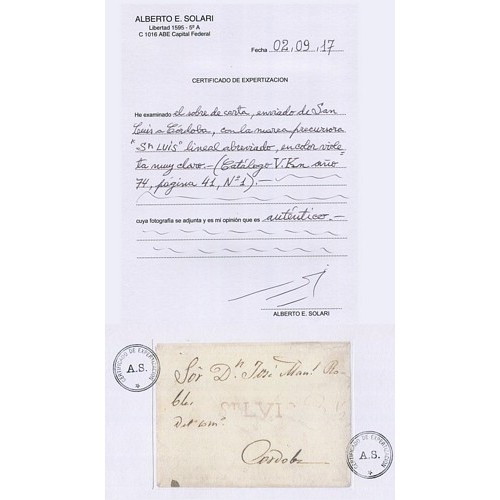 ALBERTO E. SOLARI
Libertad 1595 - 5º A
C 1016 ABE Capital Federal
Fecha 02.09.17
CERTIFICADO DE EXPERTIZACION
He examinado el sobre de carta, enviado de San
Luis a Córdoba, con la marca precursora
"Sn LUIS" lineal abreviado, en color viole=
ta muy claro.- (Catálogo V.Kn año
74, página 41, Nº1).-
cuya fotografía se adjunta y es mi opinión que es auténtico.-
ALBERTO E. SOLARI
CERTIFICADO DE EXPERTIZACION
A.S.
Sôr Dn. José Manl. Ro
bles
Cordoba
CERTIFICADO DE EXPERTIZACION
A.S.